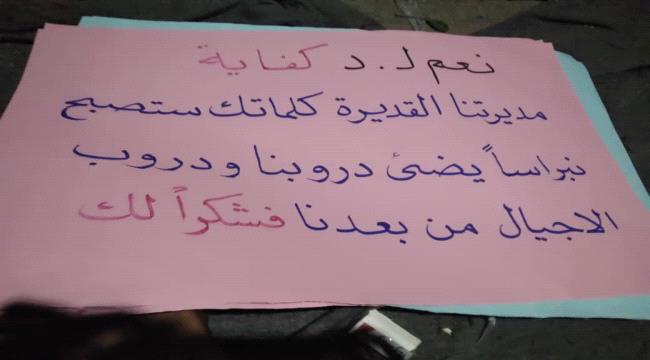 نعم لـ . د كفاية
مديرتنا القديرة كلماتك ستصبح
نبراساً يضئ دروبنا ودروب
الاجيال من بعدنا فشكراً لك